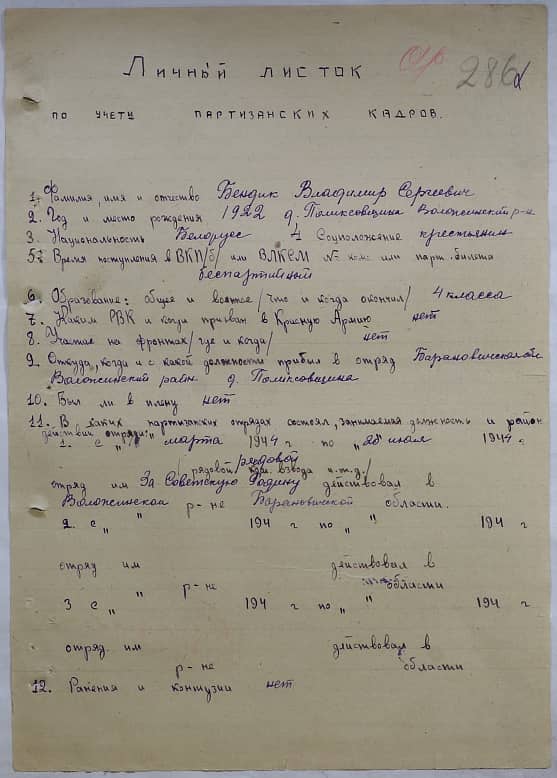 Личный листок
286
по учету партизанских кадров.
1. Фамилия, имя и отчество Бендик Владимир Сергеевич
2. Год и место рождения 1922 д. Поликсовщина Воложинский р-н
3. Национальность Белорус 4 Соцположение крестьянин
5. Время поступления в ВКП/б/ или ВЛКСМ № ком. или парт. билета
беспартийный
6. Образование: общее и военное /что и когда окончил/ 4 класса
7. Каким РВК и когда призван в Красную Армию нет
8. Участие на фронтах /где и когда/ нет
9. Откуда, когда и с какой должности прибыл в отряд Барановичской
Воложинский район д. Поликсовщина
10. Был ли в плену нет
11. В каких партизанских отрядах состоял, занимаемая должность и район
действий отряда
1. с " марта 1944 г по " 28 июля 1944 г.
рядовой
/рядовой, ком. взвода и.т.д./
отряд им За Советскую Родину действовал в
Воложинском р-не Барановичской области.
2. с " " 194 г по " " 194 г
отряд им действовал в
" р-не области
3 с " " 194 г по " " 194 г
отряд им действовал в
р-не области
12. Ранения и контузии нет